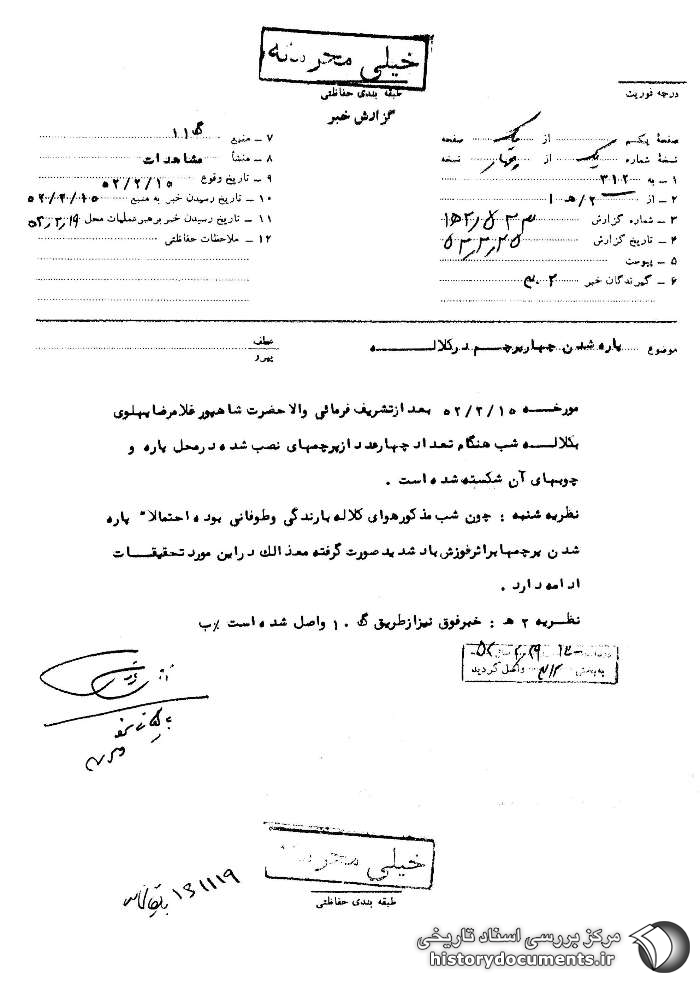 خیلی محرمانه
طبقه بندی حفاظتی
گزارش خبر
درجه فوریت
صفحهٔ یکم از یک صفحه
نسخهٔ شماره یک از چهار نسخه
۱ ـ به ۳۱۲
۲ ـ از ۲/هـ ۱
۳ ـ شماره گزارش
۴ ـ تاریخ گزارش
۵ ـ پیوست
۶ ـ گیرندگان خبر ۳۰۲
۷ ـ منبع ۱۱گ
۸ ـ منشأ مشاهدات
۹ ـ تاریخ وقوع ۵۲/۲/۱۵
۱۰ ـ تاریخ رسیدن خبر به منبع ۵۲/۲/۱۵
۱۱ ـ تاریخ رسیدن خبر برهبر عملیات محل ۵۲٫۲٫۱۹
۱۲ ـ ملاحظات حفاظتی
موضوع پاره شدن چهار پرچم در کلاله
عطف
پیرو
مورخه ۵۲/۲/۱۵ بعد از تشریف فرمائی والاحضرت شاهپور غلامرضا پهلوی
بکلاله شب هنگام تعداد چهارعدد از پرچمهای نصب شده در محل پاره و
چوبهای آن شکسته شده است .
نظریه شنبه : چون شب مذکور هوای کلاله بارندگی و طوفانی بوده احتمالاً پاره
شدن پرچمها بر اثر فوزش باد شدید صورت گرفته معذالك در این مورد تحقیقات
ادامه دارد .
نظریه ۲ هـ : خبر فوق نیز از طریق گ ۱۰ واصل شده است ٪ب
به بخش ۳۱۲ واصل گردید
خیلی محرمانه
طبقه بندی حفاظتی
بایگانی ۱۳۱۱۱۹
مرکز بررسی اسناد تاریخی
historydocuments.ir